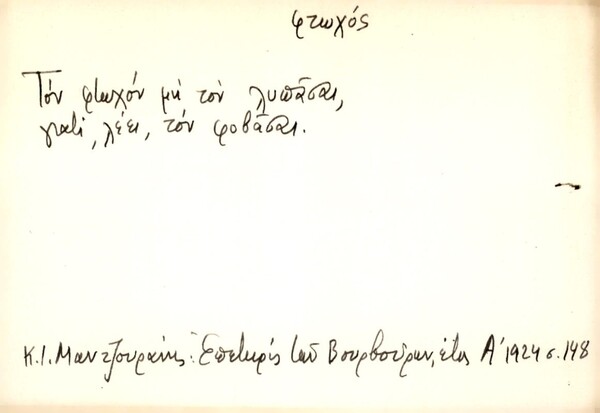 φτωχός
Τόν φτωχόν μή τόν λυπᾶσαι,
γιατί, λέει, τόν φοβᾶσαι.
Κ.Ι. Μαντζουράνης: Ἐπετηρίς τῶν Βουρβούρων, ἔτος Α' 1924 σ. 148